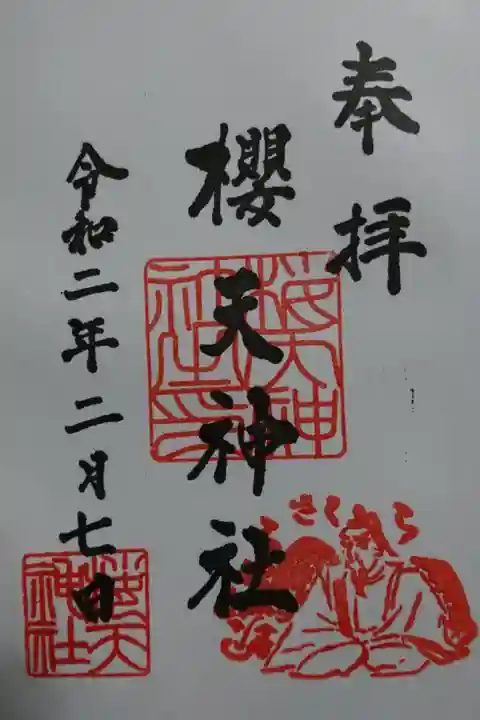 奉拝
櫻天神社
令和二年二月七日
櫻天神社印
さくら
櫻天神社